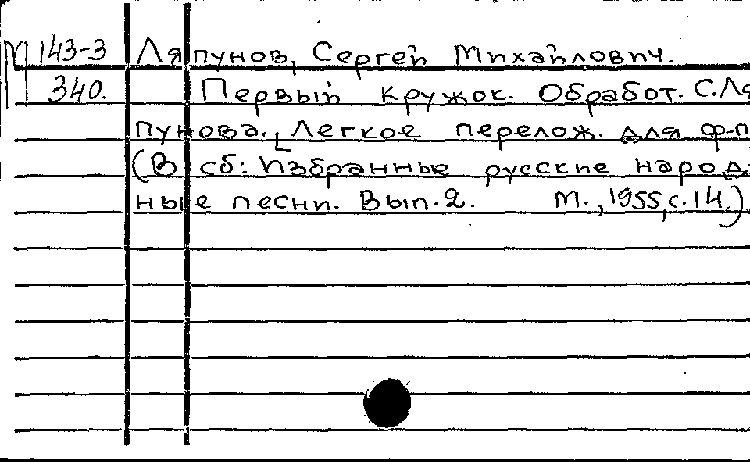 М 143-3 Ляпунов, Сергей Михайлович.
340. Первый кружок. Обработ. С.Ля
пунова. [Легкое перелож. для ф-п
(В сб: Избранные русские народ-
ные песни. Вып.2. М., 1955, с.14.)